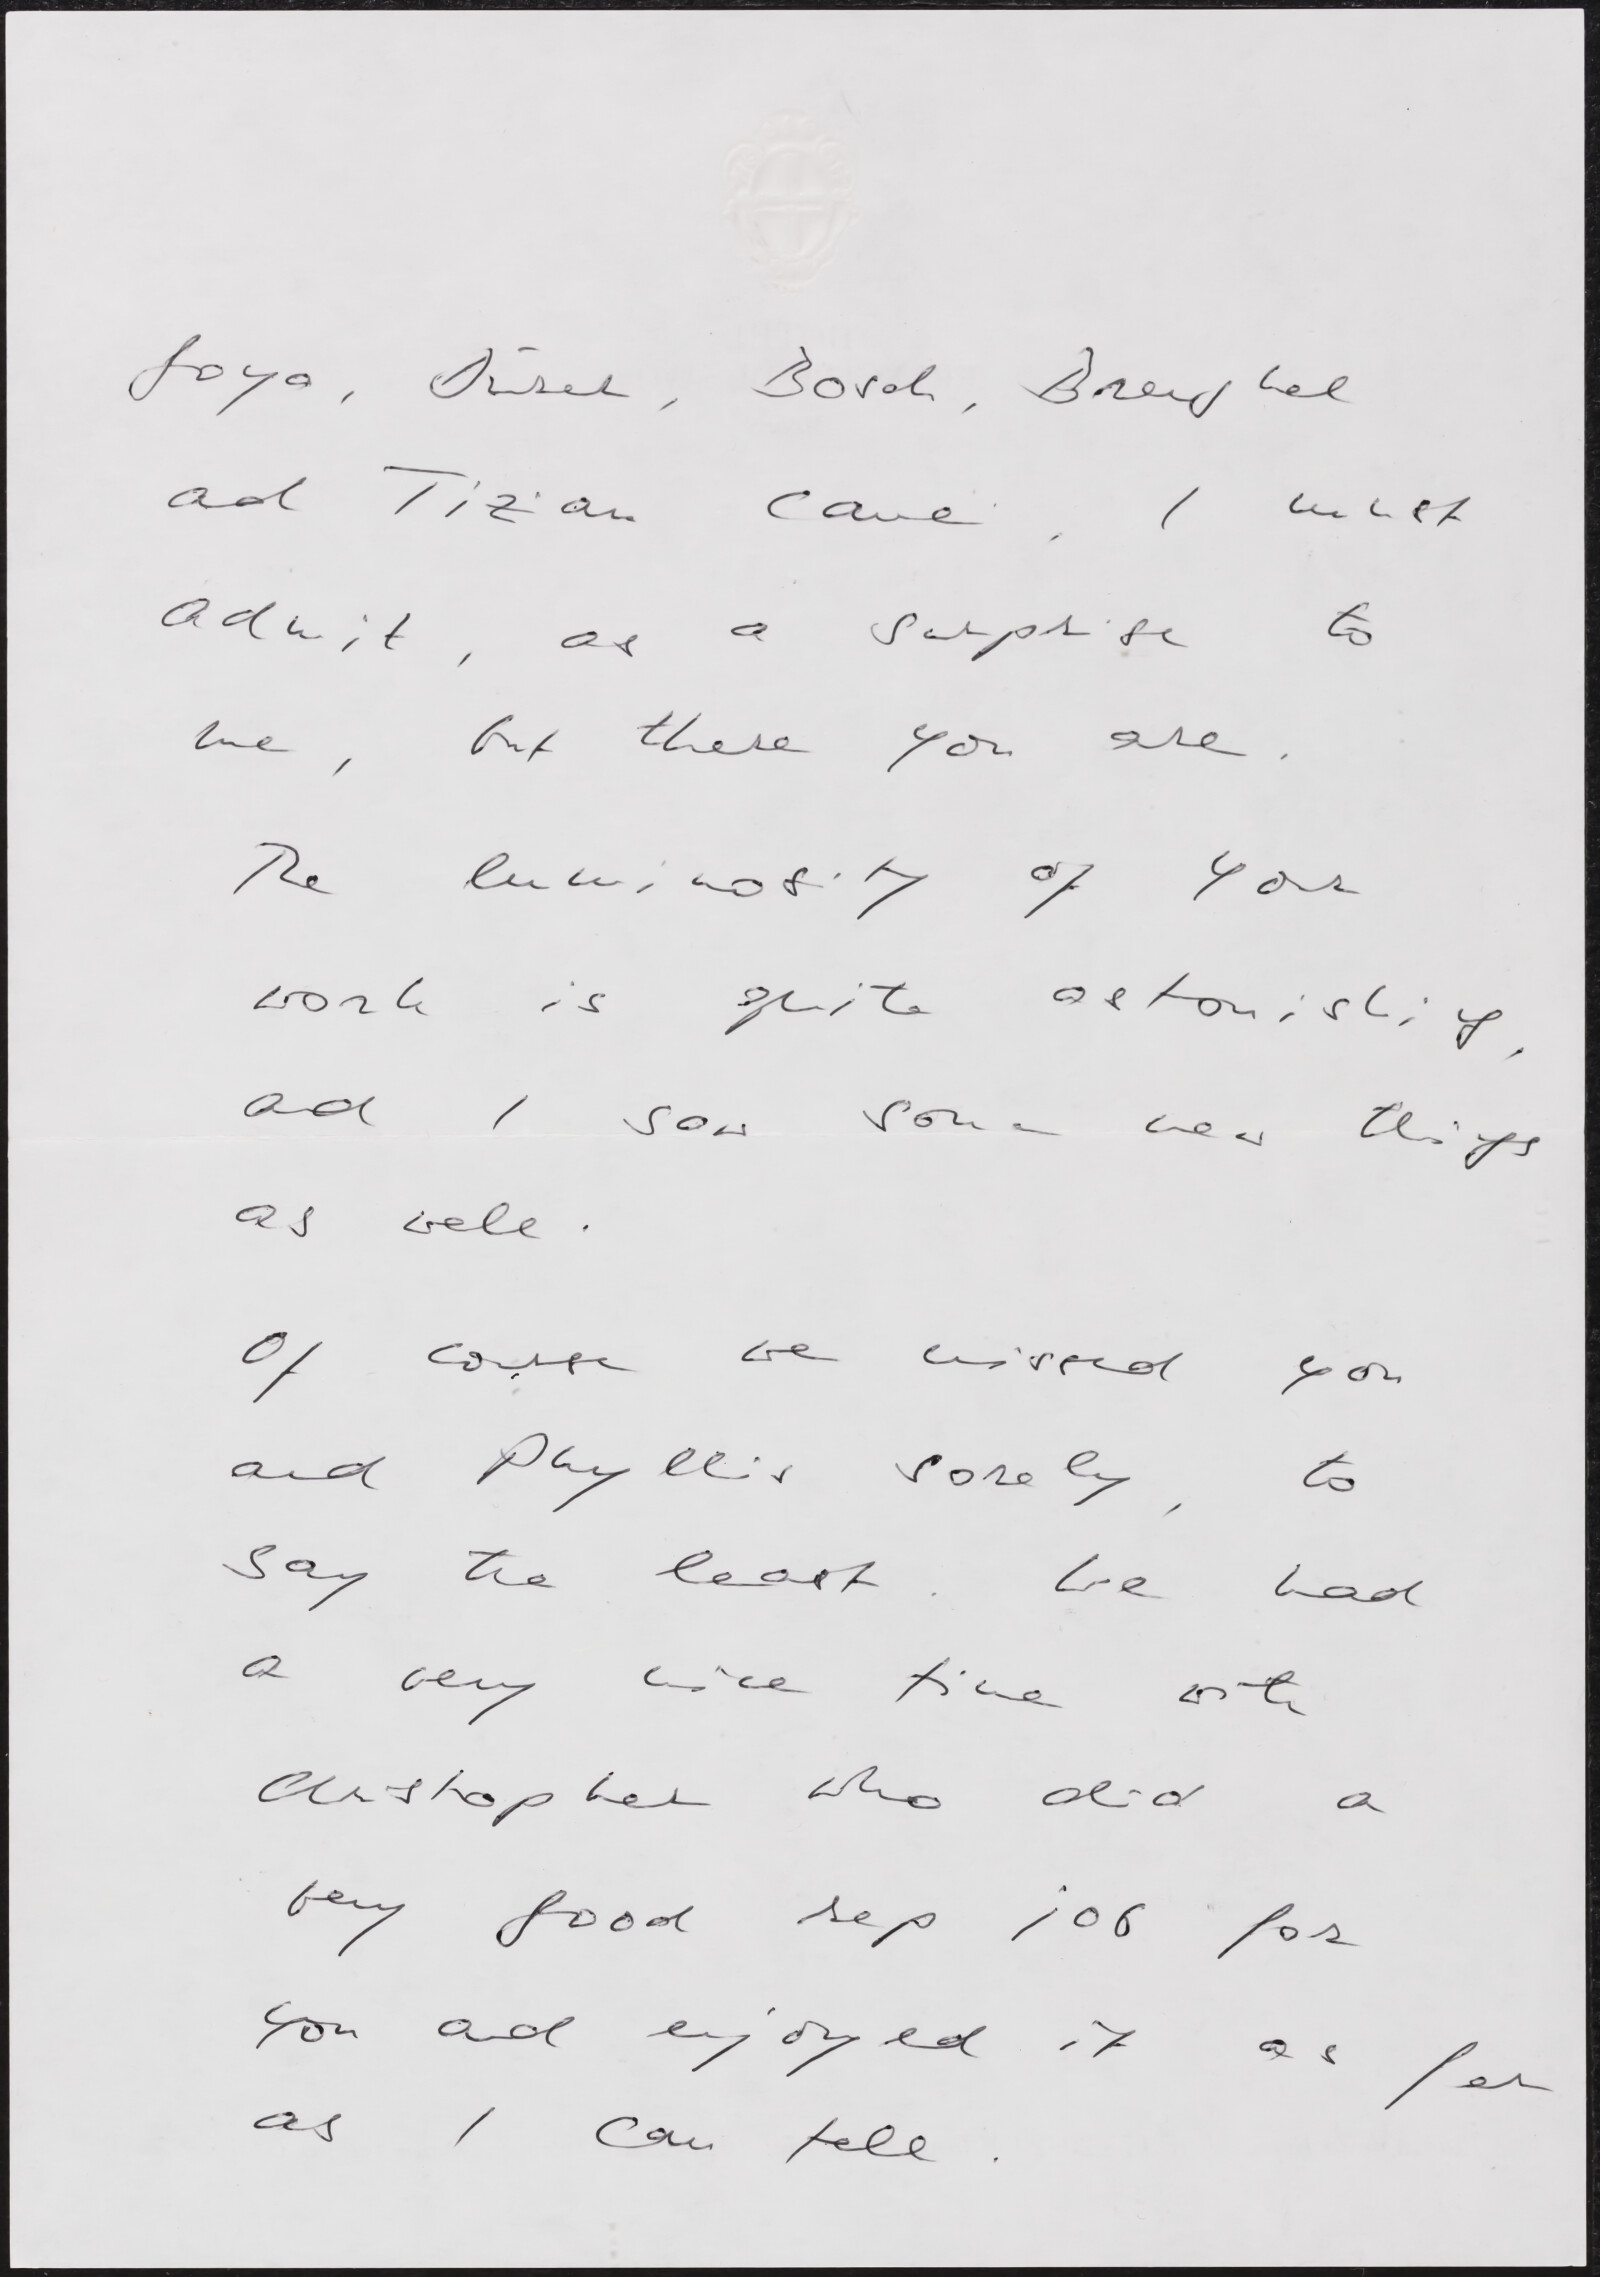 Goya, Dürer, Bosch, Breughel
and Tizian came, I must
admit, as a surprise to
me, but there you are.
The luminosity of your
work is quite astonishing,
and I saw some new things
as well.
Of course we missed you
and Phyllis sorely, to
say the least. We had
a very nice time with
Christopher who did a
very good rep job for
you and enjoyed it as far
as I can tell.